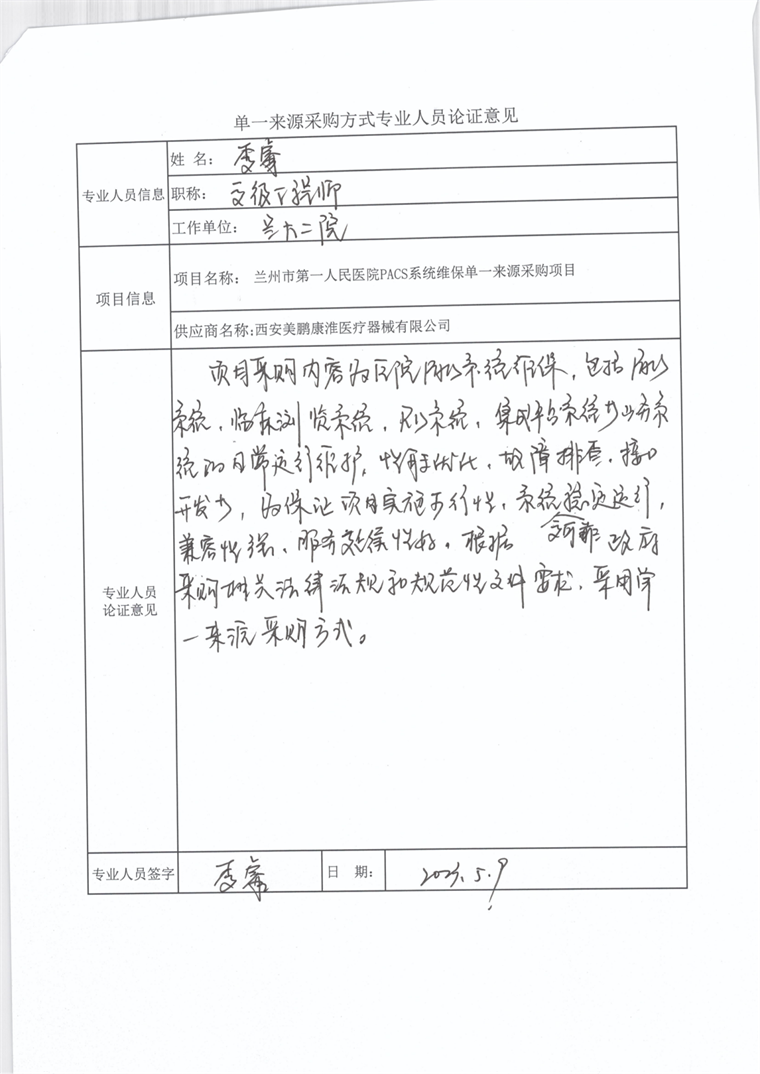 单一来源采购方式专业人员论证意见
专业人员信息
姓 名： 李睿
职称： 高级工程师
工作单位： 兰大二院
项目信息
项目名称： 兰州市第一人民医院PACS系统维保单一来源采购项目
供应商名称:西安美鹏康淮医疗器械有限公司
专业人员
论证意见
项目采购内容为医院PACS系统维保，包括PACS
系统，临床浏览系统，RIS系统，集成平台系统等业务系
统的日常运行维护，性能优化，故障排查，接口
开发等，为保证项目实施可行性，系统稳定运行，
兼容性强，服务延续性好，根据 政府
采购相关法律法规和规范性文件要求，采用单
一来源采购方式。
专业人员签字
李睿
日 期：
2023.5.9